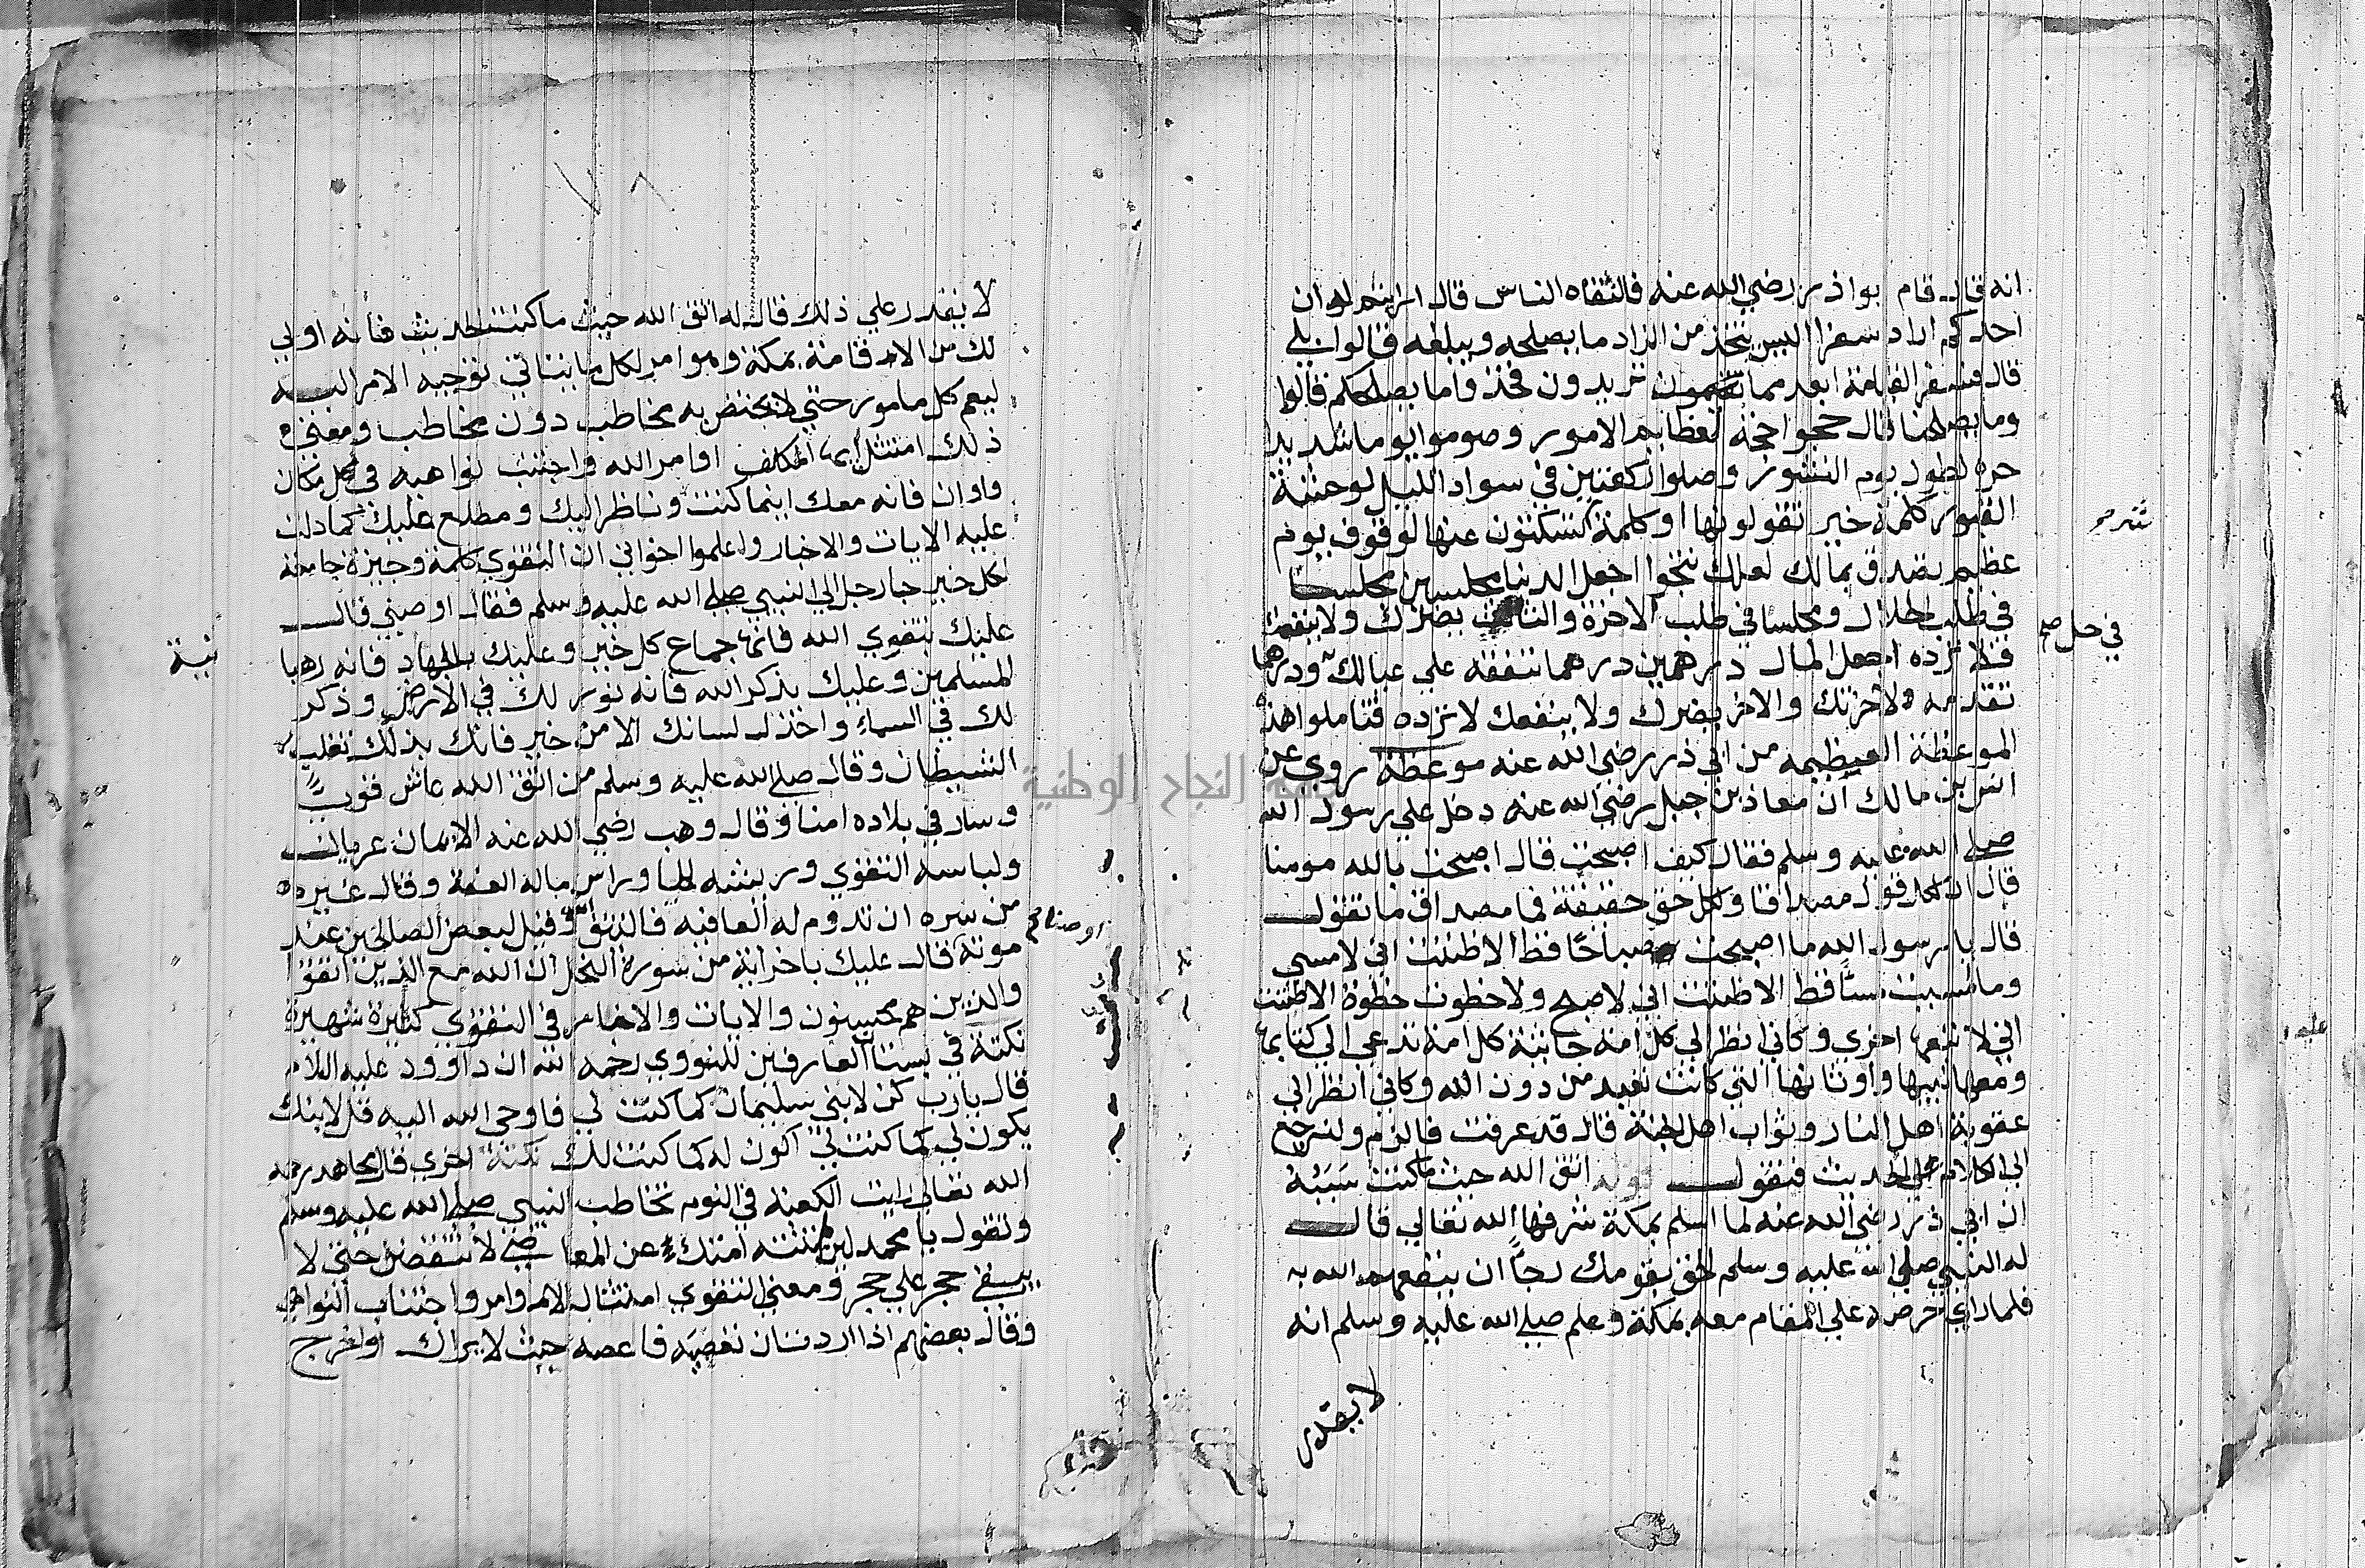 انه قال قام بواذر رضي الله عنه فالتقاه الناس قال ارايتم لو ان
احدكم اراد سفرا اليس يتخذ من الزاد ما يصلحه ويبلغه قالوا بلي
قال فسفر القيامة ابعد مما تريدون فخذوا ما يصلحكم قالوا
وما يصلحنا قال حجوا حجة لعظايم الامور وصوموا يوما شديدا
حره لطول يوم النشور وصلوا ركعتين في سواد الليل لوحشة
القبور كلمة خير تقولونها او كلمة تسكتون عنها لوقوف يوم
عظيم تصدق بمالك لعلك تنجوا اجعل الدنيا مجلسين مجلسا
في طلب الحلال ومجلسا في طلب الاخرة والثالث يضرك ولا ينفعك
فلا ترده اجعل المال درهمين درهما تنفقه علي عيالك ودرهما
تقدمه لاخرتك والاخر يضرك ولا ينفعك لا ترده فتاملوا هذه
الموعظة العظيمه من ابي ذر رضي الله عنه موعظة روي عن
انس بن مالك ان معاذ بن جبل رضي الله عنه دخل علي رسول الله
صلي الله عليه وسلم فقال كيف اصبحت قال اصبحت بالله مومنا
قال ان لكل قول مصداقا ولكل حق حقيقة فما مصداق ما تقول
قال يا رسول الله ما اصبحت صباحا قط الا ظننت اني لا امسي
وما امسيت مساً قط الا ظننت اني لا اصبح ولا خطوت خطوة الا ظننت
اني لا اتبعها اخري وكاني انظر الي كل امة جاثية كل امة تدعي الي كتابها
ومعها نبيها واوثانها التي كانت تعبد من دون الله وكاني انظر الي
عقوبة اهل النار وثواب اهل الجنة قال قد عرفت فالزم ولنرجع
الي الكلام علي الحديث فنقول قوله اتق الله حيث ما كنت سببه
ان ابي ذر رضي الله عنه لما اسلم بمكة شرفها الله تعالي قال
له النبي صلي الله عليه وسلم الحق بقومك رجاً ان ينفعهم الله به
فلما راي حرصه علي المقام معه بمكة وعلم صلي الله عليه وسلم انه
لا يقدر
في حل صح
لا يقدر علي ذلك قال له اتق الله حيث ما كنت الحديث فانه اولي
لك من الاقامة بمكة وهو امر لكل ما يتاتي توجيه الامر اليه
ليعم كل مامور حتي لا يختص به مخاطب دون مخاطب ومعني
ذلك امتثل ايها المكلف اوامر الله واجتنب نواهيه في كل مكان
واوان فانه معك اينما كنت وناظر اليك ومطلع عليك كما دلت
عليه الايات والاخبار واعلموا اخواني ان التقوي كلمة وجيزة جامعة
لكل خير جا رجل الي النبي صلي الله عليه وسلم فقال اوصيني قال
عليك بتقوي الله فانها جماع كل خير وعليك بالجهاد فانه رهبا
المسلمين وعليك بذكر الله فانه نور لك في الارض وذكر
لك في السماء واخذل لسانك الا من خير فانك بذلك تغلب
الشيطان وقال صلي الله عليه وسلم من اتق الله عاش قوياً
وسار في بلاده امنا وقال وهب رضي الله عنه الايمان عريان
ولباسه التقوي وريشه الحيا وراس ماله العفة وقال غيره
من سره ان تدوم له العافيه فاليتق الله وقيل لبعض الصالحين عند
موته قال عليك باخر اية من سورة النحل ان الله مع الذين اتقوا
والذين هم محسنون والايات والاخبار في التقوي كثيرة شهيرة
نكتة في بستان العارفين للنووي رحمه الله ان داوود عليه السلام
قال يارب كن لابني سليمان كما كنت لي فاوحي الله اليه قل لابنك
يكون لي كما كنت لي اكون له كما كنت لك نكتة اخري قال مجاهد رحمه
الله تعالي رايت الكعبة في النوم تخاطب النبي صلي الله عليه وسلم
وتقول يا محمد لين لم تنته امتك عن المعاصي لانتقضن حتي لا
يبقي حجر علي حجر ومعني التقوي امتثال الاوامر واجتناب النواهي
وقال بعضهم اذا اردت ان تعصيه فاعصه حيث لا يراك واخرج
اوصنا صح
جامعة النجاح الوطنية